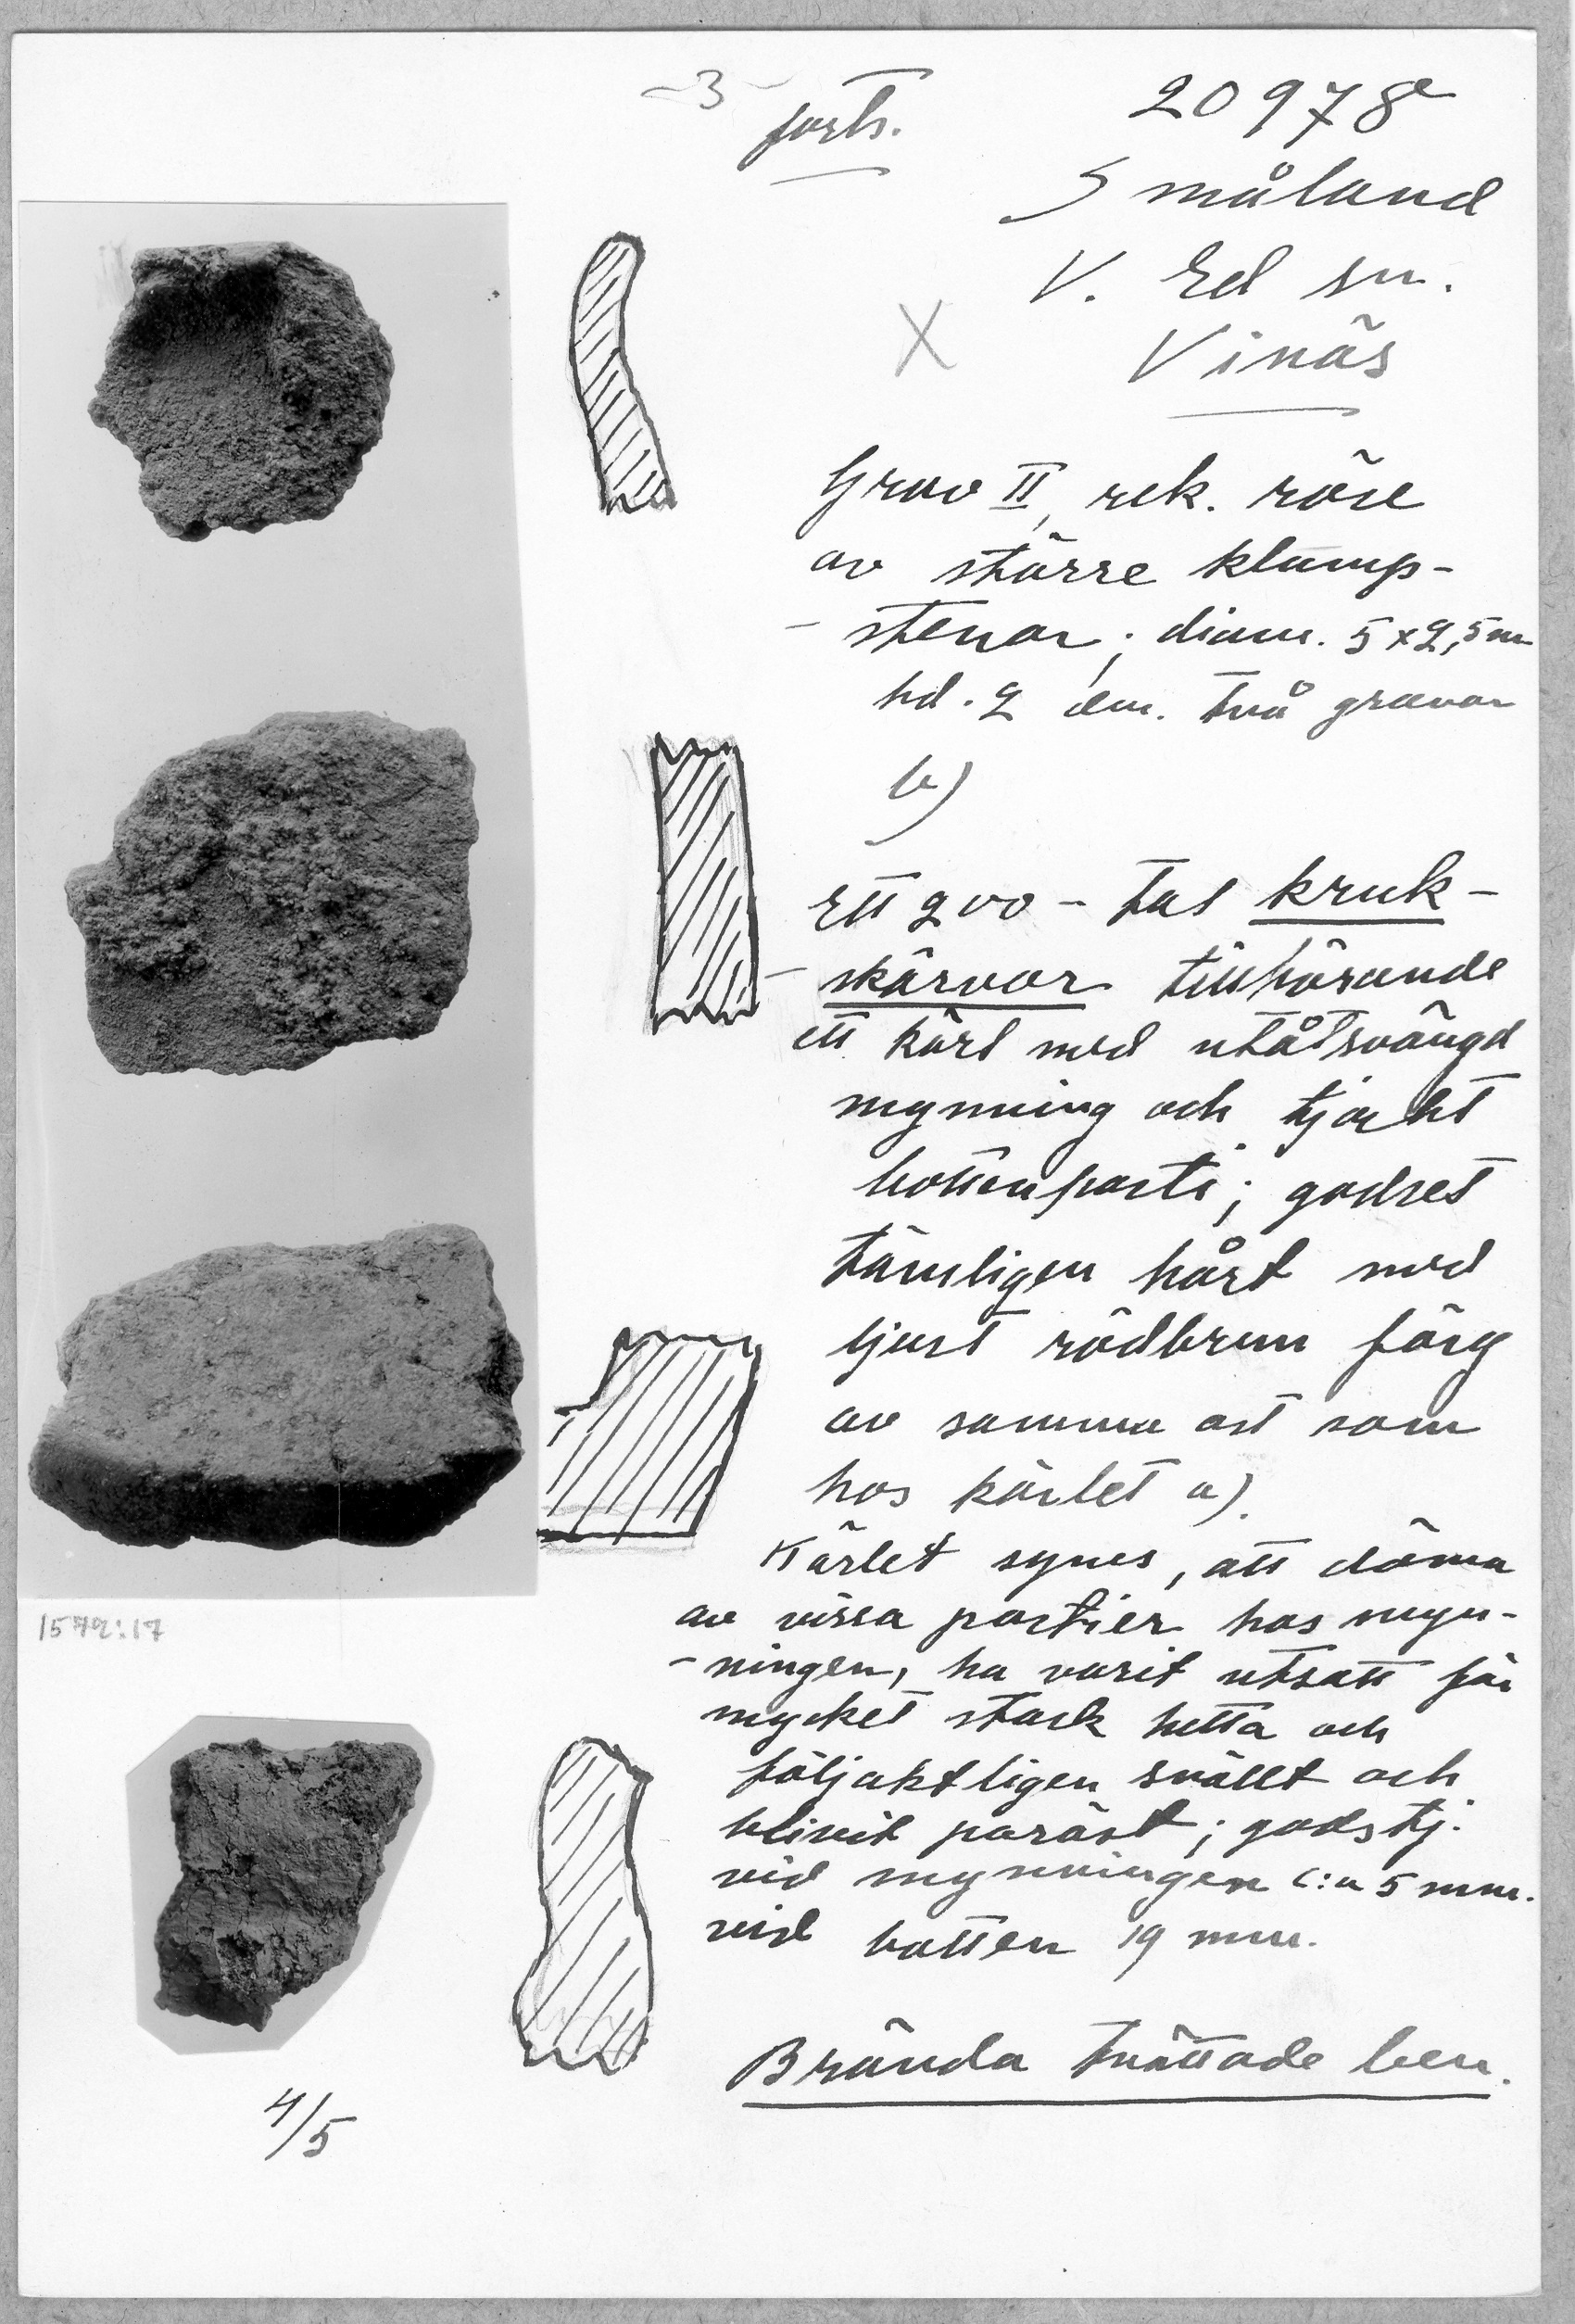 -3-
forts.
20978
Småland
V. Ed sn.
X
Vinäs
Grav II, rek. röse
av större klump-
-stenar; diam. 5 x 2,5 m
hd. 2 dm. två gravar
b)
Ett 200-tal kruk-
-skärvor tillhörande
ett kärl med utåtsvängd
mynning och tjockt
bottenparti; godset
tämligen hårt med
ljust rödbrun färg
av samma art som
hos kärlet a).
Kärlet synes, att döma
av vissa partier hos myn-
-ningen, ha varit utsatt för
mycket stark hetta och
följaktligen svällt och
blivit poröst; godstj.
vid mynningen c:a 5 mm.
vid botten 19 mm.
Brända tvättade ben.
1572:17
4/5